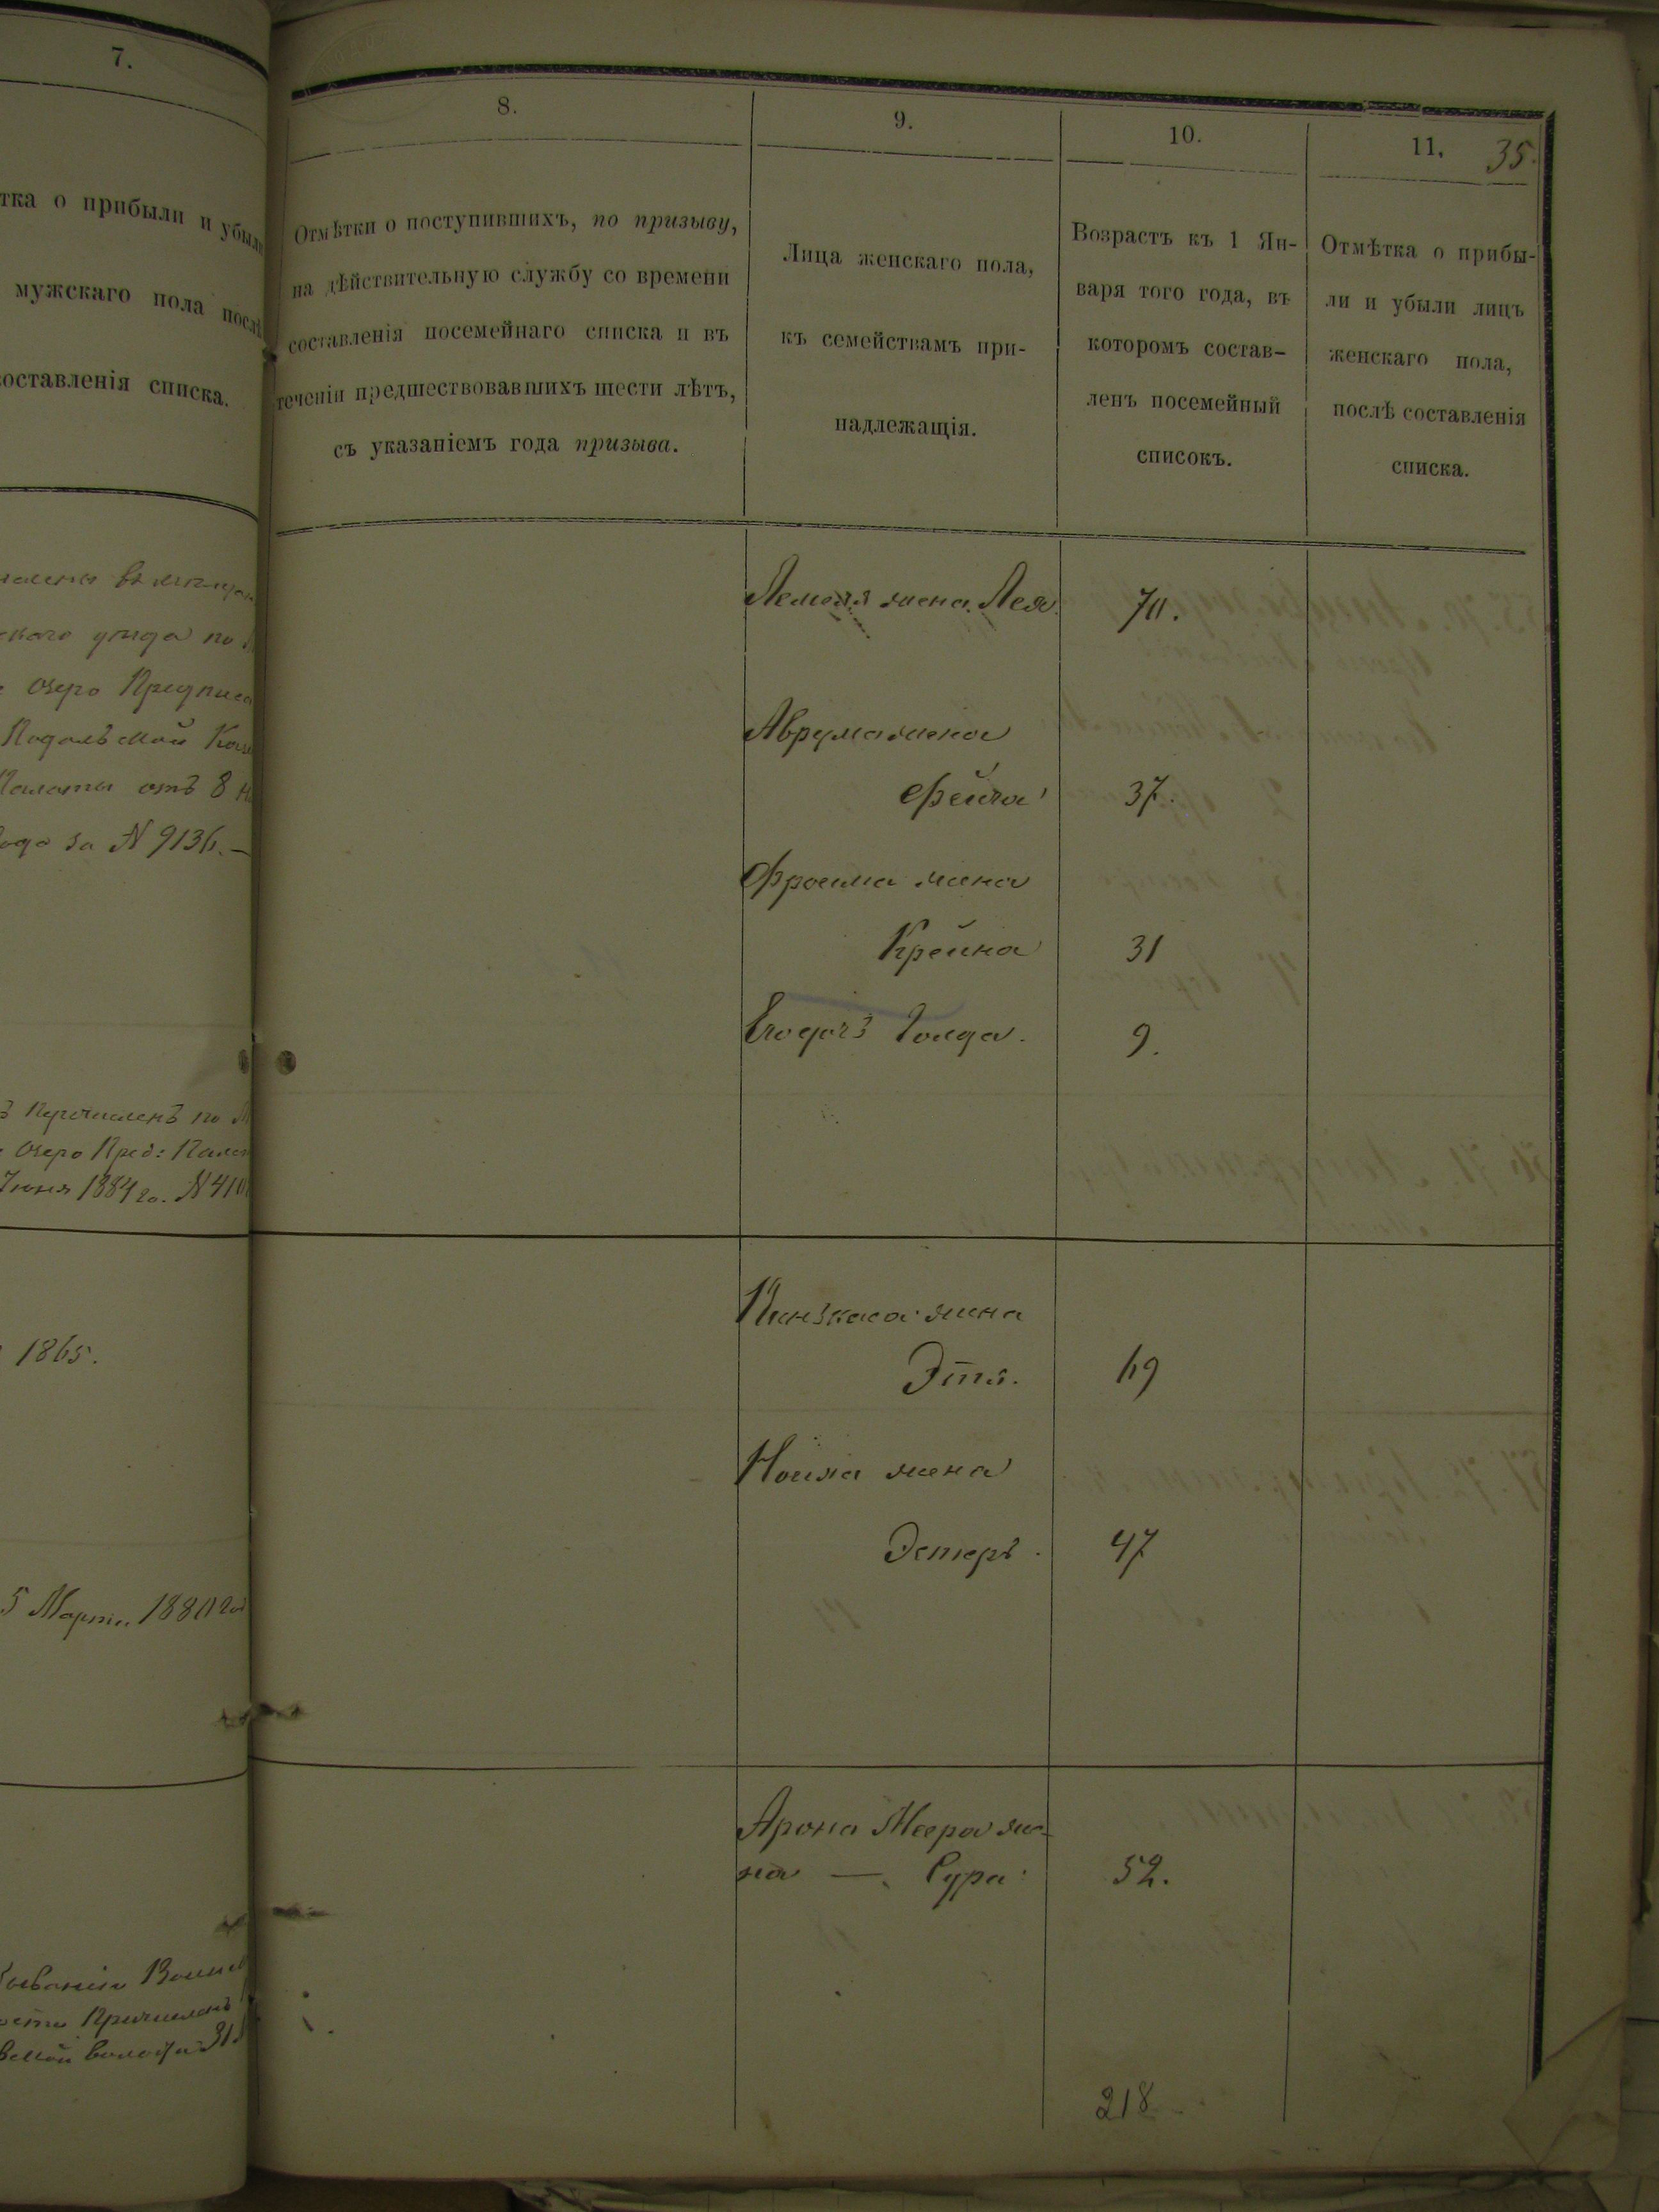 7.
тка о прибыли и убыли
мужскаго пола послѣ
составленія списка.
скаго уезда по
озеро Предписа
Подольской Каз
Палаты отъ 8
года за N 9136.—
Перечисленъ по
озеро Пред: Палат
Іюня 1884 го. N 410
1865.
5 Марта 1880 го
Причисленъ
31
8.
Отмѣтки о поступившихъ, по призыву,
на дѣйствительную службу со времени
составленія посемейнаго списка и въ
теченіи предшествовавшихъ шести лѣтъ,
съ указаніемъ года призыва.
9.
Лица женскаго пола,
къ семействамъ при-
надлежащія.
10.
Возрастъ къ 1 Ян-
варя того года, въ
которомъ состав-
ленъ посемейный
списокъ.
11.
35.
Отмѣтка о прибы-
ли и убыли лицъ
женскаго пола,
послѣ составленія
списка.
жена Лея. 70.
Аврума жена
Фейга 37.
Фроима жена
Крейна 31
Его дочь Голда. 9.
Пинькаса жена
Этя. 69
жена
Эстеръ. 47
Арона Меера же-
на — Сура 52.
218